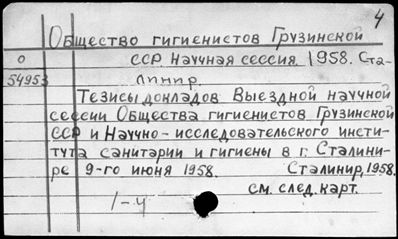 4
Общество гигиенистов Грузинской
О ССР Научная сессия 1958. Ста-
54953 линир.
Тезисы докладов Выездной научной
сессии Общества гигиенистов Грузинской
ССР и Научно-исследовательского инсти-
тута санитарии и гигиены в г. Сталини-
ре 9-го июня 1958. Сталинир, 1958.
см. след. карт.
1-4